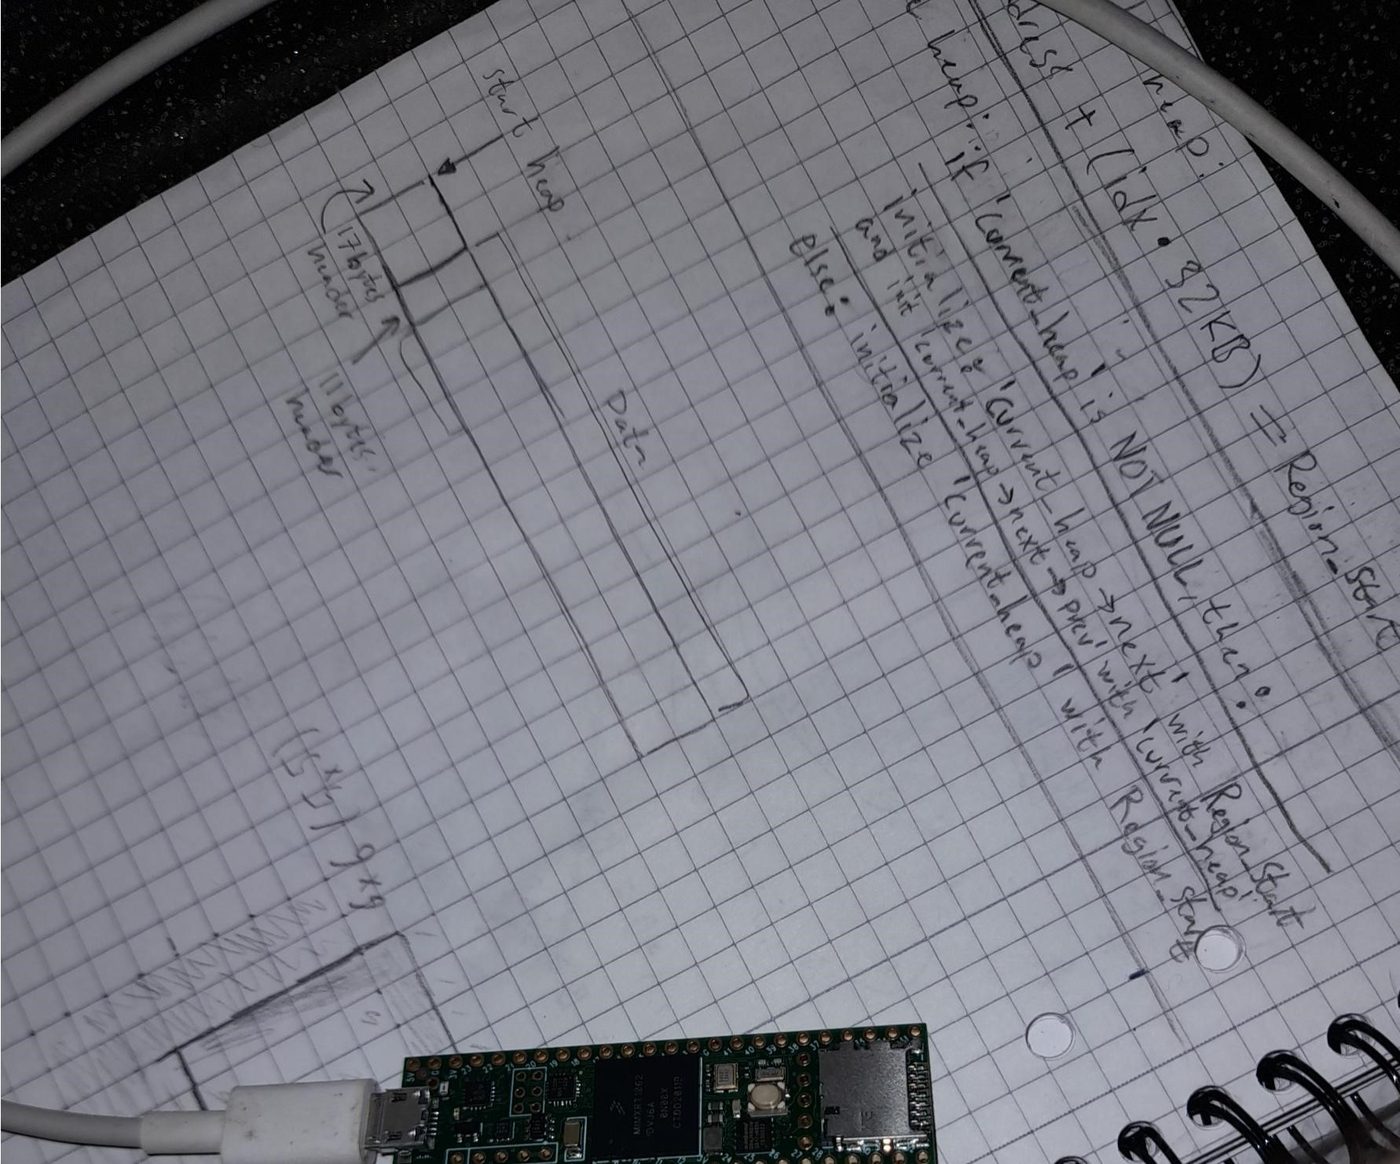 heap:
dress + (idx • 32KB) = Region_Start
heap: if 'current_heap' is NOT NULL, then:
initialize 'current_heap→next' with Region_Start
and init 'current_heap→next→prev' with 'current_heap'
else: initialize 'current_heap' with Region_Start
start heap
Data
17bytes
header
11bytes
header
6x6 (5x5)